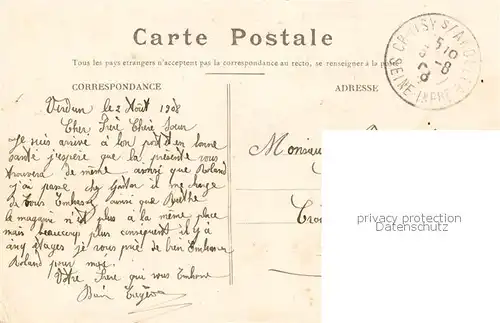 Carte Postale
Tous les pays étrangers n'acceptent pas la correspondance au recto, se renseigner à la poste
CORRESPONDANCE
ADRESSE
Verdun le 2 Août 1908
Cher Frère Chère Sœur
Je suis arrivé à bon port et en bonne
santé j'espère que la présente vous
trouvera de même ainsi que Roland
j'ai passé chez Gaston il me charge
de vous Embrasser ainsi que Berthe
le magasin n'est plus à la même place
mais beaucoup plus conséquent il y a
cinq étages je vous prie de bien Embrasser
Roland pour moi.
Votre Frère qui vous Embrasse
Monsieur
privacy protection